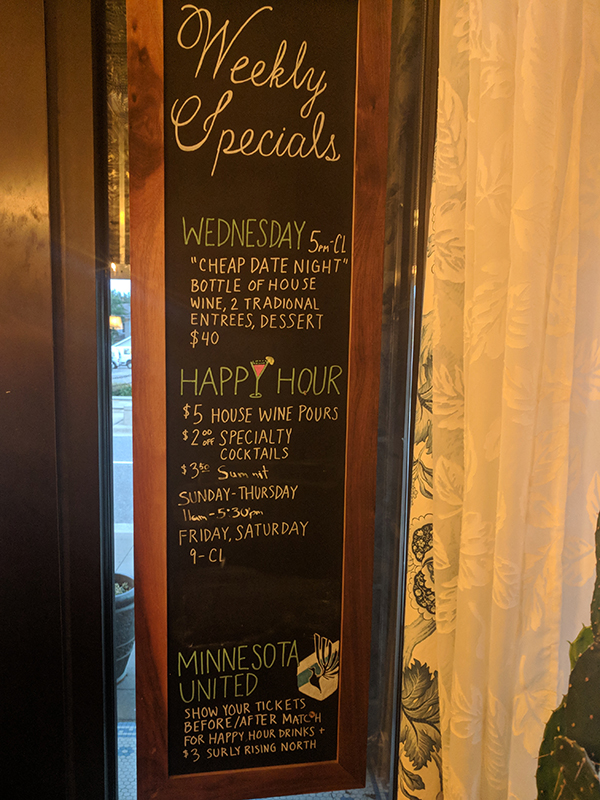 Weekly
Specials
WEDNESDAY 5pm-CL
"CHEAP DATE NIGHT"
BOTTLE OF HOUSE
WINE, 2 TRADIONAL
ENTREES, DESSERT
$40
HAPPY HOUR
$5 HOUSE WINE POURS
$2.00 OFF SPECIALTY
COCKTAILS
$3.50 Summit
SUNDAY-THURSDAY
11am-5:30pm
FRIDAY, SATURDAY
9-CL
MINNESOTA
UNITED
SHOW YOUR TICKETS
BEFORE/AFTER MATCH
FOR HAPPY HOUR DRINKS +
$3 SURLY RISING NORTH